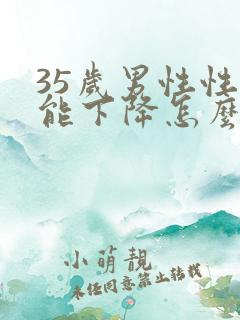 35歲男性性
能下降怎麼
小萌靚
未經同意禁止轉載